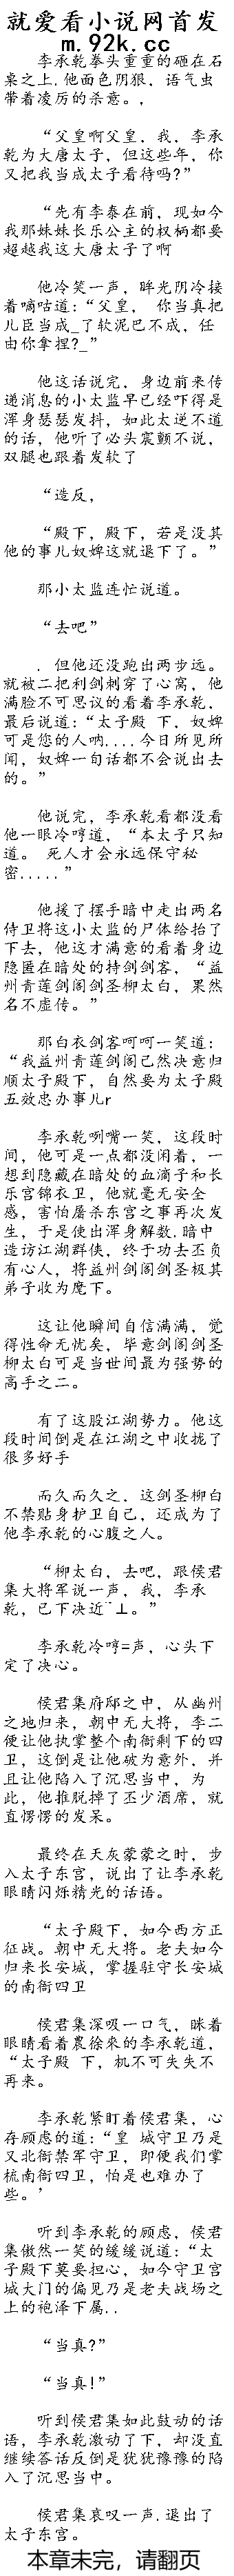 就爱看小说网首发
m.92k.cc
李承乾拳头重重的砸在石
桌之上.他面色阴狠，语气虫
带着凌厉的杀意。，
“父皇啊父皇，我，李承
乾为大唐太子，但这些年，你
又把我当成太子看待吗?”
“先有李泰在前，现如今
我那妹妹长乐公主的权柄都要
超越我这大唐太子了啊
他冷笑一声，眸光阴冷接
着嘀咕道：“父皇， 你当真把
儿臣当成_了软泥巴不成，任
由你拿捏?_”
他这话说完，身边前来传
递消息的小太监早已经吓得是
浑身瑟瑟发抖，如此太逆不道
的话，他听了必头震颤不说，
双腿也跟着发软了
“造反，
“殿下，殿下，若是没其
他的事儿奴婢这就退下了。”
那小太监连忙说道。
“去吧”
． 但他还没跑出两步远。
就被二把利剑刺穿了心窝，他
满脸不可思议的看着李承乾，
最后说道：“太子殿 下，奴婢
可是您的人呐....今日所见所
闻，奴婢一句话都不会说出去
的。”
他说完，李承乾看都没看
他一眼冷哼道，“本太子只知
道。 死人才会永远保守秘
密.....”
他援了摆手暗中走出两名
侍卫将这小太监的尸体给抬了
下去，他这才满意的看着身边
隐匿在暗处的持剑剑客，“益
州青莲剑阁剑圣柳太白，果然
名不虚传。”
那白衣剑客呵呵一笑道：
“我益州青莲剑阁己然决意归
顺太子殿下，自然要为太子殿
五效忠办事儿r
李承乾咧嘴一笑，这段时
间，他可是一点都没闲着，一
想到隐藏在暗处的血滴子和长
乐宫锦衣卫，他就毫无安全
感，害怕屠杀东宫之事再次发
生，于是使出浑身解数.暗中
造访江湖群侠，终于功去丕负
有心人，将益州剑阁剑圣极其
弟子收为麾下。
这让他瞬间自信满满，觉
得性命无忧矣，毕意剑阁剑圣
柳太白可是当世间最为强势的
高手之二。
有了这股江湖势力。他这
段时间倒是在江湖之中收拢了
很多好手
而久而久之．这剑圣柳白
不禁贴身护卫自己，还成为了
他李承乾的心腹之人。
“柳太白，去吧，跟侯君
集大将军说一声，我，李承
乾，已下决近¨⊥。”
李承乾冷哼=声，心头下
定了决心。
侯君集府邸之中，从幽州
之地归来，朝中无大将，李二
便让他执掌整个南衙剩下的四
卫，这倒是让他破为意外，并
且让他陷入了沉思当中，为
此，他推脱掉了丕少酒席，就
直愣愣的发呆。
最终在天灰蒙蒙之时，步
入太子东宫，说出了让李承乾
眼睛闪烁精光的话语。
“太子殿下，如今西方正
征战。朝中无大将。老夫如今
归来长安城，掌握驻守长安城
的南衙四卫
侯君集深吸一口气，眯着
眼睛看着農徐來的李承乾道，
“太子殿 下，机不可失失不
再来。
李承乾紧盯着侯君集，心
存顾虑的道：“皇 城守卫乃是
又北衙禁军守卫，即便我们掌
杭南衙四卫，怕是也难办了
些。’
听到李承乾的顾虑，侯君
集傲然一笑的缓缓说道：“太
子殿下莫要担心，如今守卫宫
城大门的偏见乃是老夫战场之
上的袍泽下属..
“当真?”
“当真!”
听到侯君集如此鼓动的话
语，李承乾激动了下，却没直
继续答话反倒是犹犹豫豫的陷
入了沉思当中。
侯君集哀叹一声.退出了
太子东宫。
本章未完，请翻页